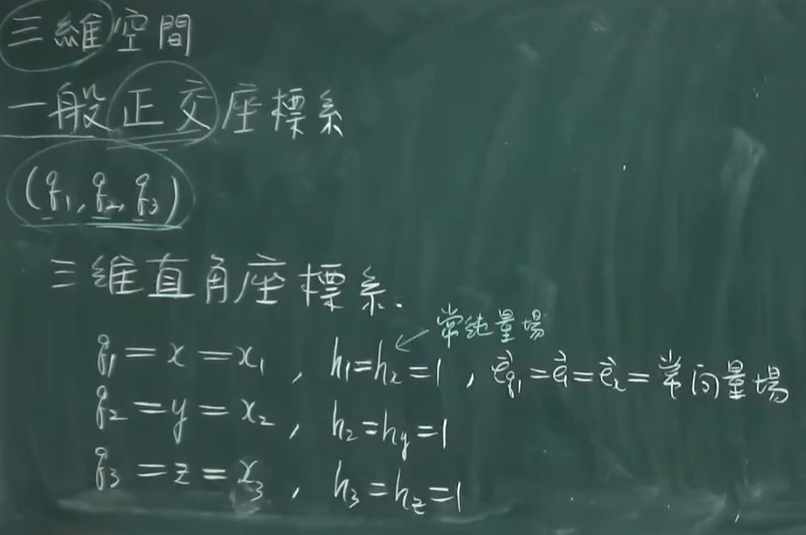 三維空間
一般正交座標系
(q₁, q₂, q₃)
三維直角座標系.
常純量場
q₁ = x = x₁ , h₁ = hₓ = 1 , e⃗q₁ = e⃗₁ = e⃗ₓ = 常向量場
q₂ = y = x₂ , h₂ = hy = 1
q₃ = z = x₃ , h₃ = hz = 1